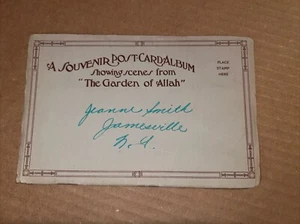 A SOUVENIR POST-CARD ALBUM
Showing scenes from
"The Garden of Allah"
PLACE
STAMP
HERE
Jeanne Smith
Jamesville
N.Y.